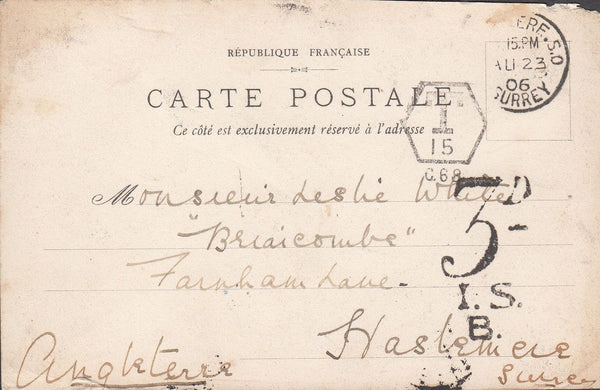 RÉPUBLIQUE FRANÇAISE
CARTE POSTALE
Ce côté est exclusivement réservé à l'adresse
ERE. S.O
15.PM
AU 23
06
SURREY
T
15
C.68
Monsieur Leslie White
"Briarcombe"
Farnham Lane.
Haslemere
Surrey
Angleterre
3D
I.S.
B.